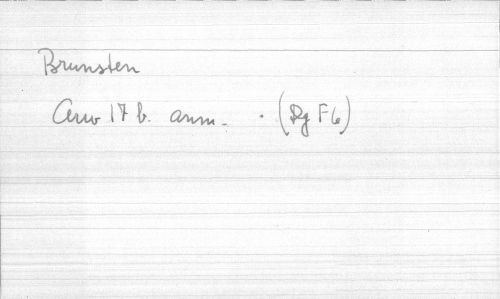 Brunsten
Arw 17 b. anm. · (Dg F6)